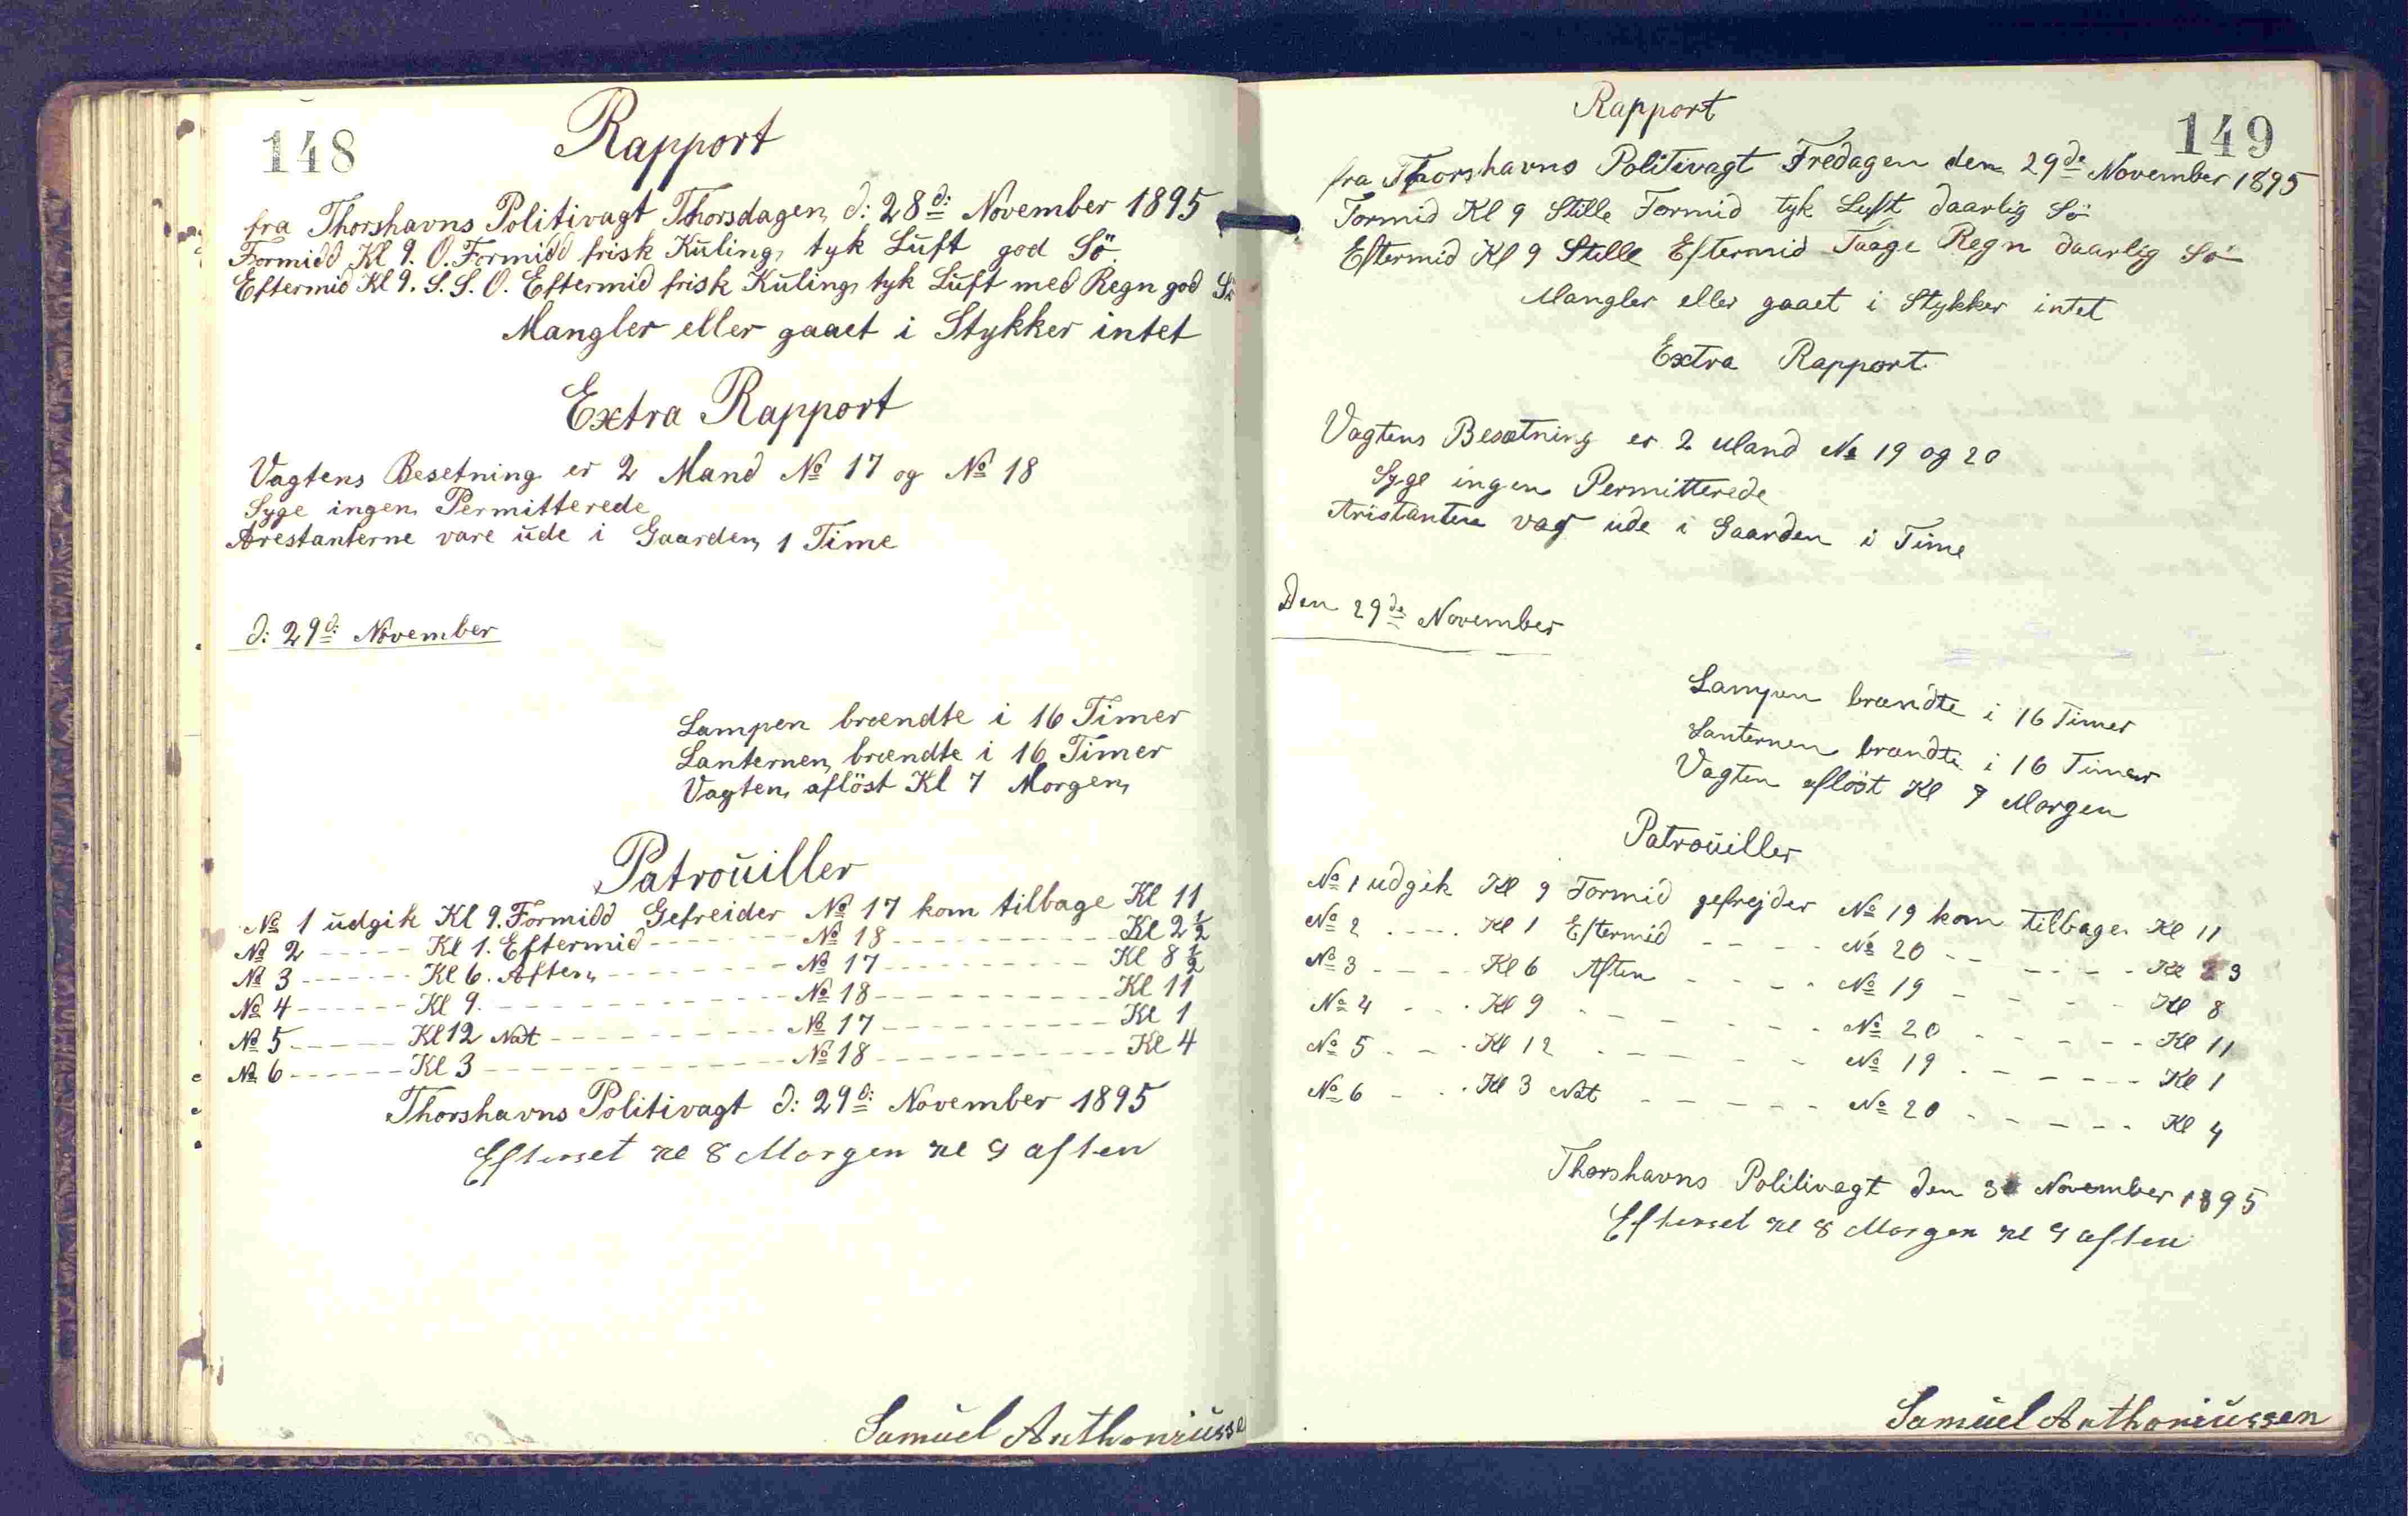 148
Rapport
fra Thorshavns Politivagt Thorsdagen d: 28d: November 1895
Formidd Kl 9. O. Formidd frisk Kuling, tyk Luft god Sö
Eftermid Kl 9. S. S. O. Eftermid frisk Kuling tyk Luft med Regn god Sö
Mangler eller gaaet i Stykker intet
Extra Rapport
Vagtens Besetning er 2 Mand No 17 og No 18
Syge ingen Permitterede
Arrestanterne vare ude i Gaarden 1 Time
d: 29d: November
Lampen brændte i 16 Timer
Lanternen brændte i 16 Timer
Vagten aflöst Kl 7 Morgen
Patrouiller
No 1 udgik Kl 9. Formidd Gefreider No 17 kom tilbage Kl 11
No 2 ----- Kl 1. Eftermid ------- No 18 ----------- Kl 2 1/2
No 3 ------ Kl 6. Aften --------- No 17 ----------- Kl 8 1/2
No 4 ------ Kl 9. --------------- No 18 ----------- Kl 11
No 5 ------ Kl 12 Nat ----------- No 17 ----------- Kl 1
No 6 ------ Kl 3 --------------- No 18 ----------- Kl 4
Thorshavns Politivagt d: 29d: November 1895
Efterset Kl 8 Morgen Kl 9 aften
Samuel Anthoniusse
149
Rapport
fra Thorshavns Politivagt Fredagen den 29de November 1895
Formid Kl 9 Stille Formid tyk Luft daarlig Sö
Eftermid Kl 9 Stille Eftermid Taage Regn daarlig Sö
Mangler eller gaaet i Stykker intet
Extra Rapport
Vagtens Besætning er 2 Mand No 19 og 20
Syge ingen Permitterede
Aristantere var ude i Gaarden i Time
Den 29de November
Lampen brændte i 16 Timer
Lanternen brændte i 16 Timer
Vagten aflöst Kl 7 Morgen
Patrouiller
No 1 udgik Kl 9 Formid gefrejder No 19 kom tilbage Kl 11
No 2 ---- Kl 1 Eftermid ----- No 20 ------ Kl 3
No 3 ---- Kl 6 Aften ---- No 19 ------ Kl 8
No 4 --- Kl 9 ------- No 20 ------ Kl 11
No 5 --- Kl 12 ------ No 19 ------ Kl 1
No 6 --- Kl 3 Nat ----- No 20 ------ Kl 4
Thorshavns Politivagt den 30 November 1895
Efterset Kl 8 Morgen Kl 9 aften
Samuel Anthoniussen